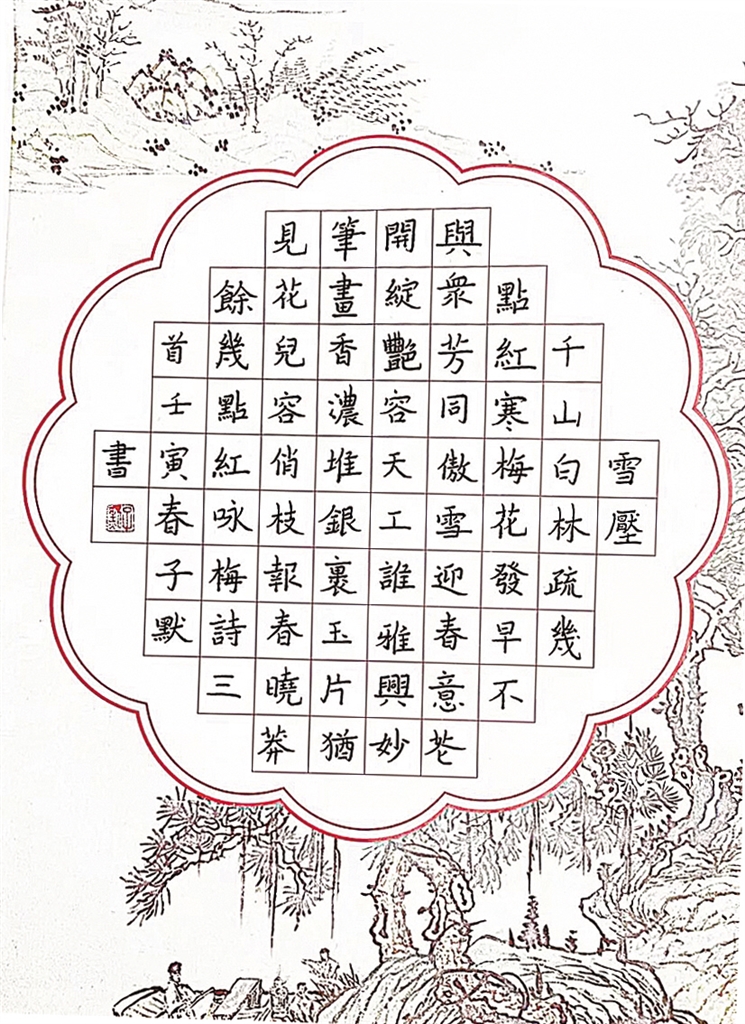 雪壓
千山白林疏幾
點紅寒梅花發早不
與衆芳同傲雪迎春意
開綻豔容天工誰雅興妙
筆畫香濃堆銀裹玉片猶
見花兒容俏枝報春曉莽
餘幾點紅咏梅詩三
首壬寅春子默
書